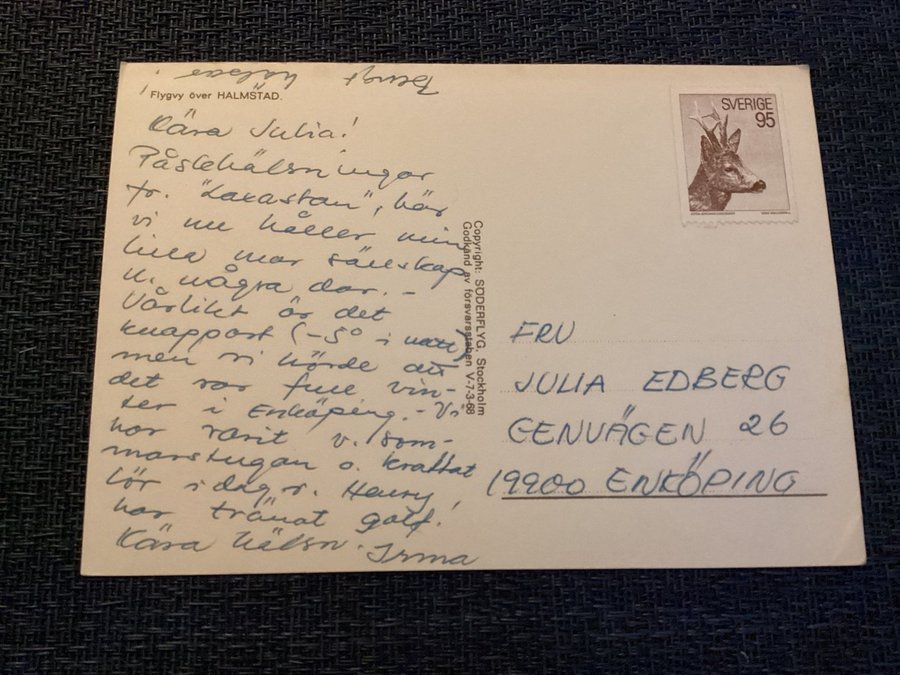 Henry hälsar!
Flygvy över HALMSTAD.
Kära Julia!
Påskhälsningar
fr. "Laxastan", här
vi nu håller min
lilla mor sällskap
n. några dar. -
Vårlikt är det
knappast (-5° i natt)
men vi hörde att
det var full vin-
ter i Enköping. - Vi
har varit v. som-
marstugan o. krattat
löv i dag o. Henry
har tränat golf!
Kära hälsn. Irma
Copyright: SÖDERFLYG, Stockholm
Godkänd av försvarsstaben V-7-3-68
SVERIGE
95
FRU
JULIA EDBERG
GENVÄGEN 26
19900 ENKÖPING